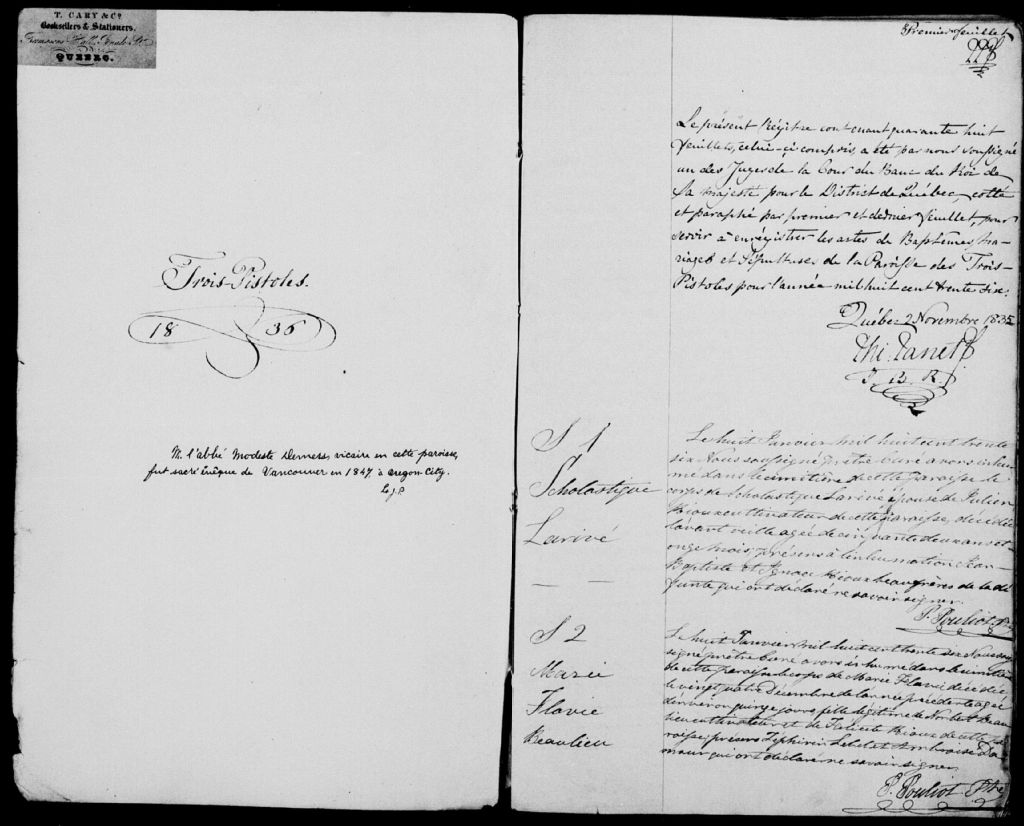 T. CARY & Co.
Booksellers & Stationers.
QUEBEC.
Trois-Pistoles.
18 36
M. l'abbé Modeste Demers, vicaire en cette paroisse,
fut sacré Évêque de Vancouver en 1847, à Oregon City.
Premier feuillet
Le présent Régître contenant quarante huit
feuillets, celui-ci compris, a été par nous soussigné
un des Juges de la Cour du Banc du Roi de
Sa Majesté pour le District de Québec, cotté
et paraphé par premier et dernier feuillet, pour
servir à enrégistrer les actes de Baptêmes, Ma-
riages et Sépultures de la Paroisse des Trois-
Pistoles pour l'année mil huit cent trente six.
Québec 2 Novembre 1835
J. B. R.
S 1
Scholastique
Larivé
Le huit Janvier mil huit cent trente
six Nous soussigné prêtre curé avons inhu
mé dans le cimetière de cette paroisse le
corps de Scholastique Larivé épouse de Julien
Rioux cultivateur de cette paroisse, décédée
l'avant veille agée de cinquante deux ans et
onze mois, présens à l'inhumation Jean-
Baptiste et Ignace Rioux beaufrères de la dé
funte qui ont déclaré ne savoir signer.
P. Pouliot Ptre
S 2
Marie
Flavie
Beaulieu
Le huit Janvier mil huit cent trente six Nous sous
signé prêtre curé avons inhumé dans le cimetière
de cette paroisse le corps de Marie Flavie décédée
le vingt quatre Décembre de l'année précédente agée
d'environ quinze jours fille légitime de Norbert Beau
lieu cultivateur et de Félicité Rioux de cette pa
roisse, présens Zéphirin Lebel et Ambroise Da
mour qui ont déclaré ne savoir signer.
P. Pouliot Ptre